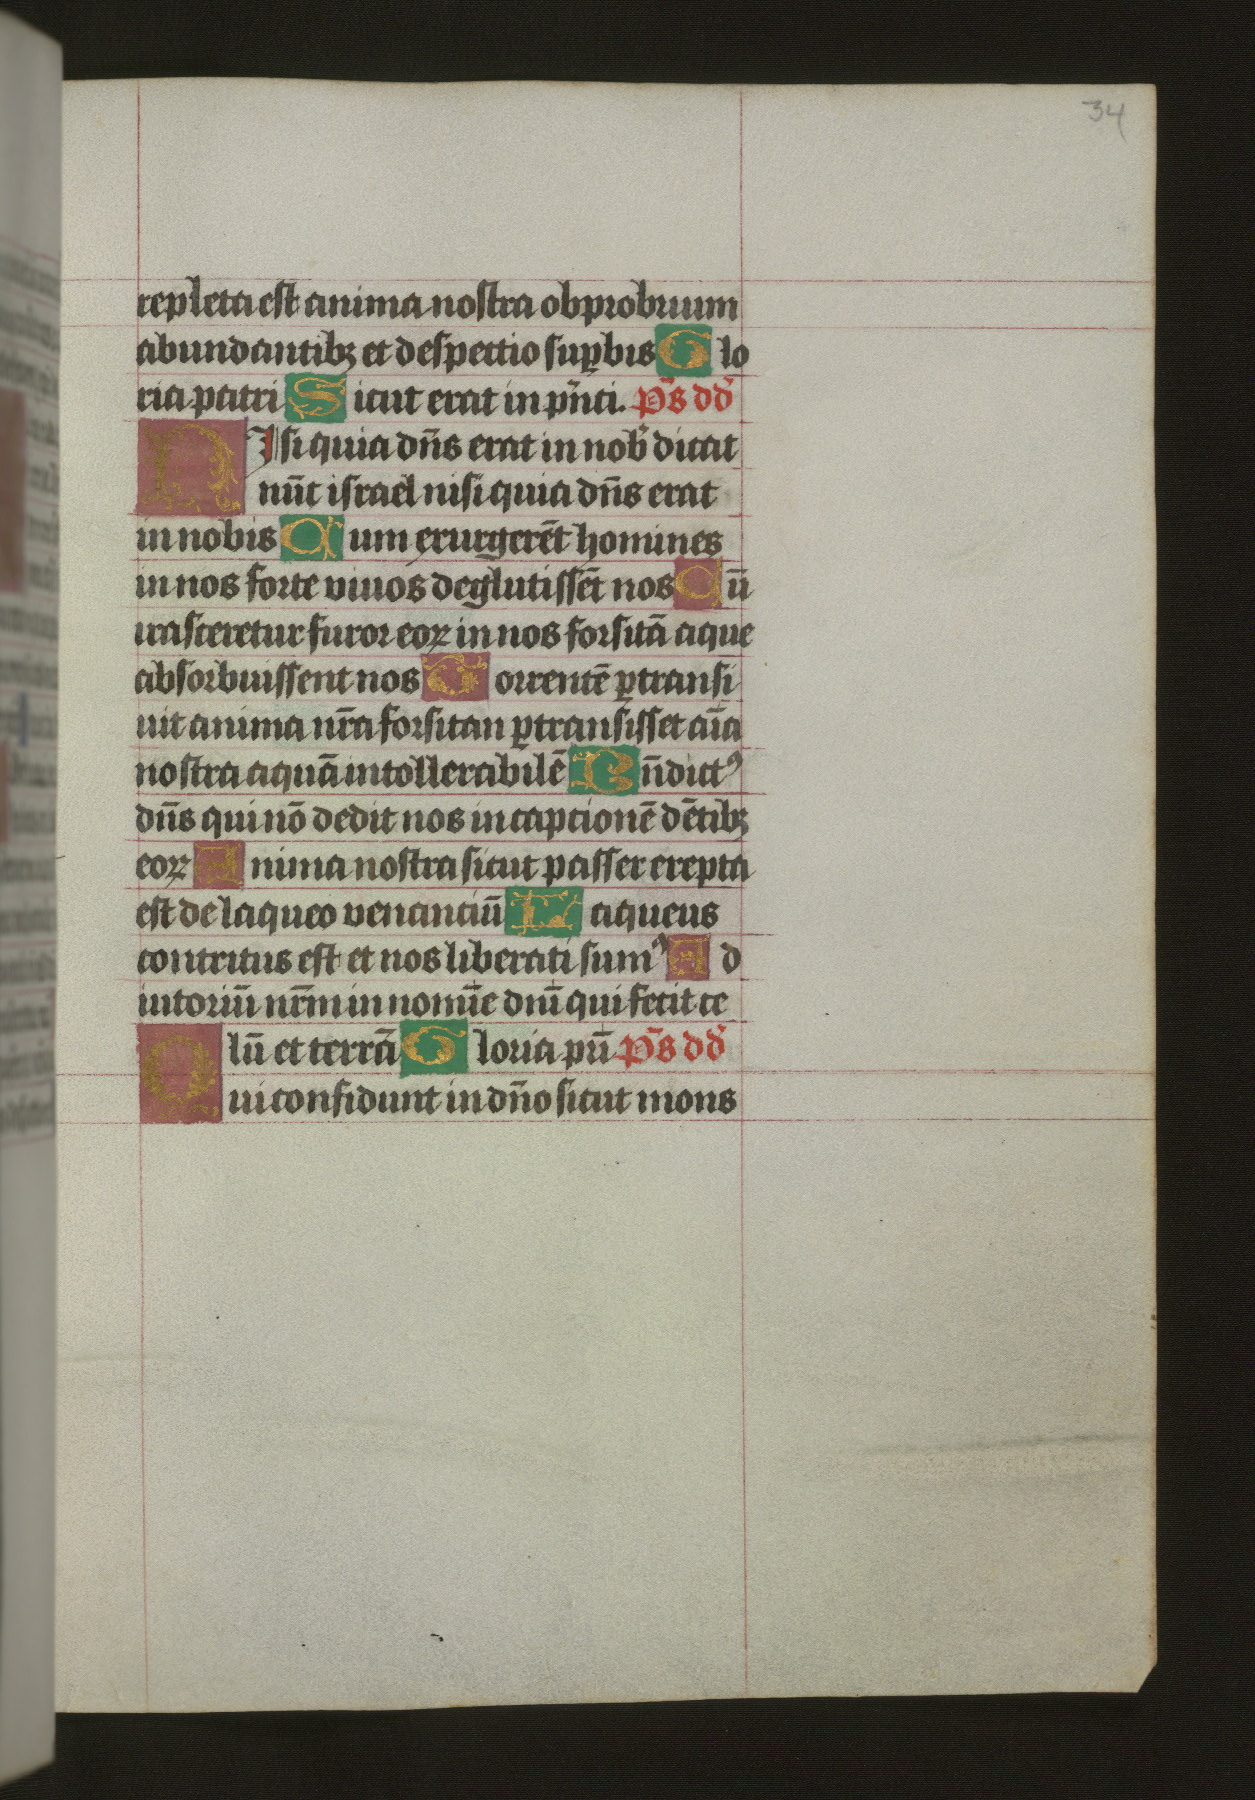 34
repleta est anima nostra obprobrium
abundantibꝫ et despectio suꝑbis Glo
ria patri Sicut erat in pn̄ti. Ps̄ dd̄
NIsi quia dn̄s erat in nob̄ dicat
nūc israel nisi quia dn̄s erat
in nobis Cum exurgerēt homines
in nos forte viuos deglutissēt nos Cū
irasceretur furor eoꝝ in nos forsitā aque
absorbuissent nos Torrentē ꝑtransi
uit anima nr̄a forsitan ꝑtransisset aīa
nostra aquā intollerabilē Bn̄dictꝰ
dn̄s qui nō dedit nos in captionē dētibꝫ
eoꝝ Anima nostra sicut passer erepta
est de laqueo venanciū Laqueus
contritus est et nos liberati sumꝰ Ad
iutoriū nr̄m in nomīe dn̄i qui fecit ce
lū et terrā Gloria pr̄i Ps̄ dd̄
Qui confidunt in dn̄o sicut mons